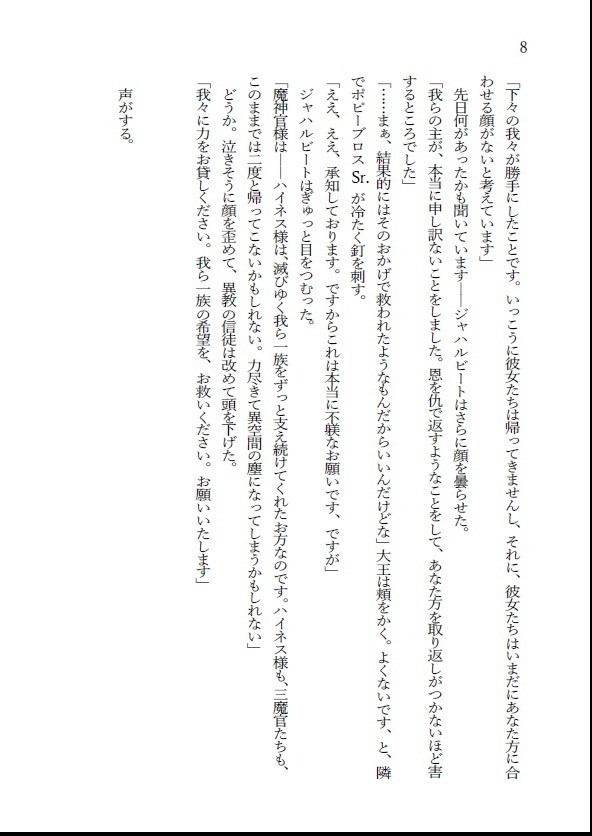 8
「下々の我々が勝手にしたことです。いっこうに彼女たちは帰ってきませんし、それに、彼女たちはいまだにあなた方に合
わせる顔がないと考えています」
先日何があったかも聞いています――ジャハルビートはさらに顔を曇らせた。
「我らの主が、本当に申し訳ないことをしました。恩を仇で返すようなことをして、あなた方を取り返しがつかないほど害
するところでした」
「……まぁ、結果的にはそのおかげで救われたようなもんだからいいんだけどな」大王は頬をかく。よくないです、と、隣
でポピーブロス Sr. が冷たく釘を刺す。
「ええ、ええ、承知しております。ですからこれは本当に不躾なお願いです、ですが」
ジャハルビートはぎゅっと目をつむった。
「魔神官様は――ハイネス様は、滅びゆく我ら一族をずっと支え続けてくれたお方なのです。ハイネス様も、三魔官たちも、
このままでは二度と帰ってこないかもしれない。力尽きて異空間の塵になってしまうかもしれない」
どうか。泣きそうに顔を歪めて、異教の信徒は改めて頭を下げた。
「我々に力をお貸しください。我ら一族の希望を、お救いください。お願いいたします」
声がする。